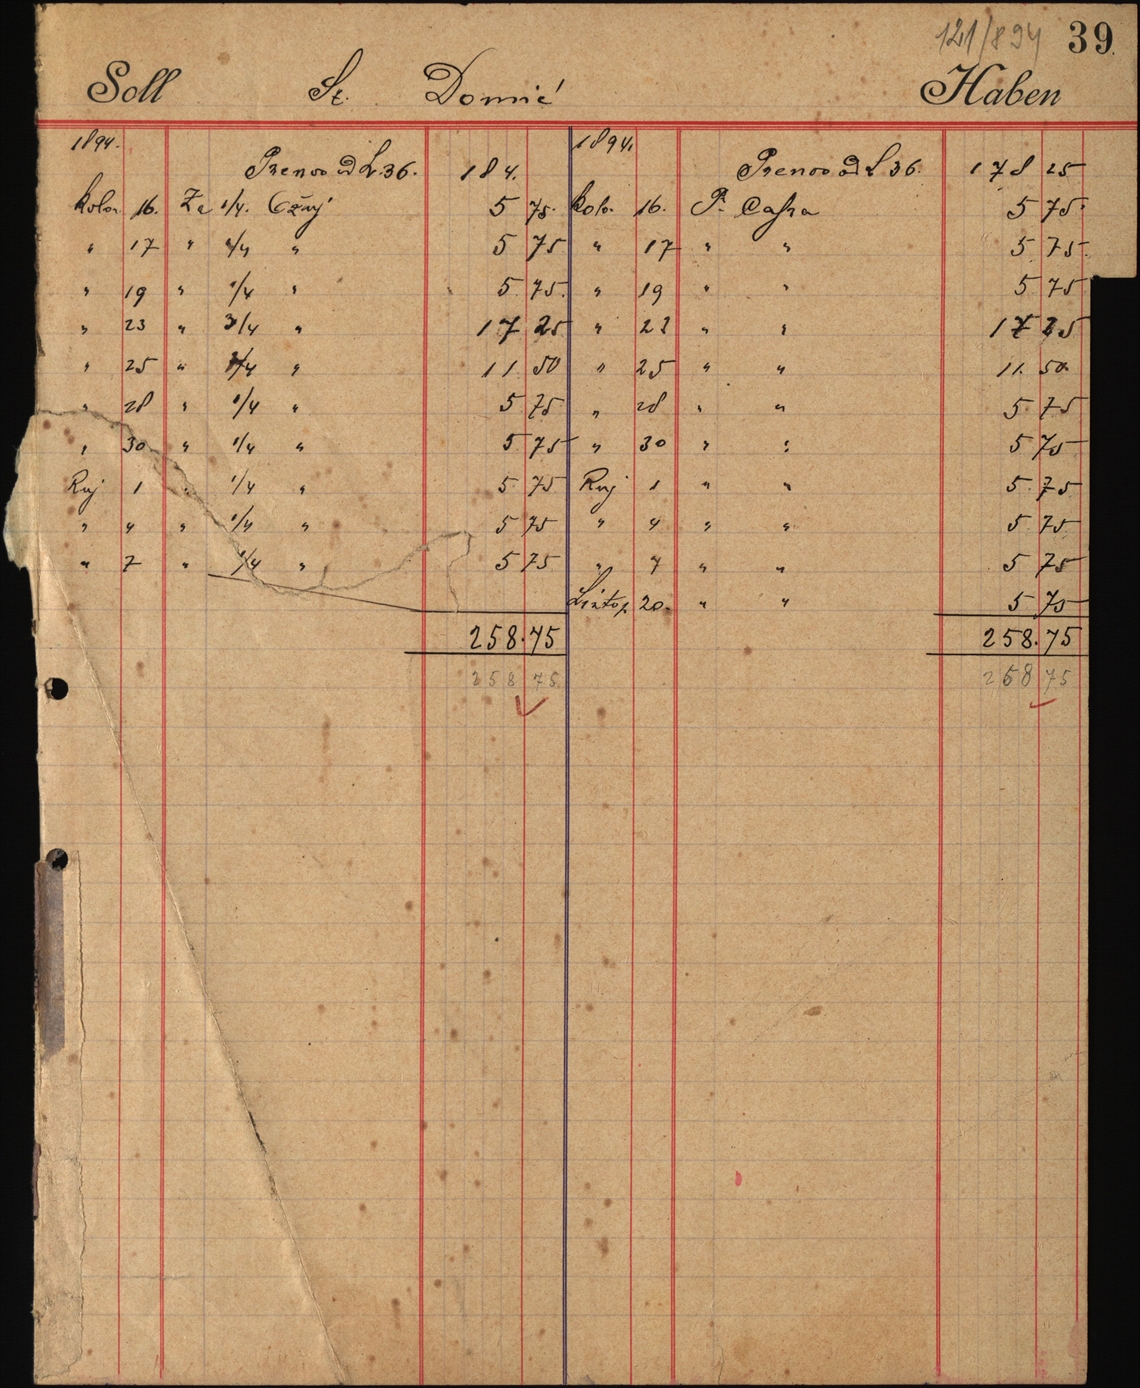 121/894 39
Soll St. Domić Haben
1894. 1894.
Prenos od L. 36. 184. Prenos od L 36. 178 25
kolov. 16. Za 1/4. 5 75. kolov. 16. P. Cassa 5 75.
" 17 " 1/4 " 5 75 " 17 " " 5 75.
" 19 " 1/4 " 5 75. " 19 " " 5 75
" 23 " 3/4 " 17 25 " 23 " " 17 25
" 25 " 2/4 " 11 50 " 25 " " 11. 50.
" 28 " 1/4 " 5 75 " 28 " " 5 75
" 30 " 1/4 " 5 75 " 30 " " 5 75
Ruj 1 " 1/4 " 5 75 Ruj 1 " " 5 75
" 4 " 1/4 " 5 75 " 4 " " 5 75
" 7 " 1/4 " 5 75 " 7 " " 5 75
Listop 20. " " 5 75
258.75 258.75
258 75. 258 75